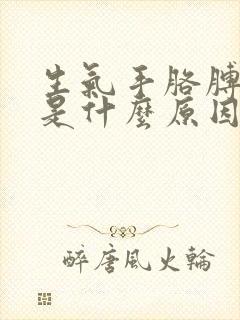 生氣手胳膊
是什麼原因
醉唐風火輪